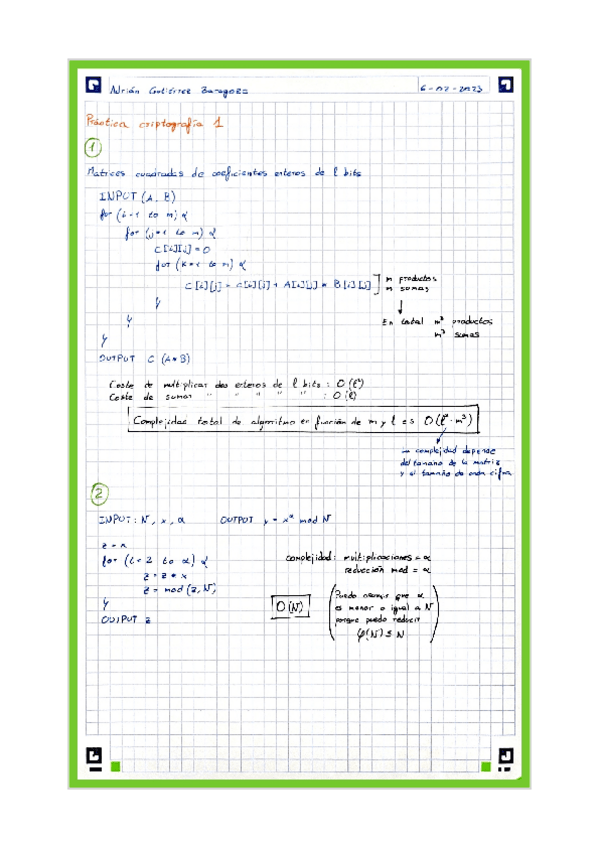 Adrián Gutiérrez
6-02-2023
Práctica criptografía 1
1
Matrices cuadradas de coeficientes enteros de l bits
INPUT (A, B)
for (i=1 to m) {
for (j=1 to m) {
C[i][j] = 0
for (k=1 to m) {
C[i][j] = C[i][j] + A[i][j] * B[i][j]
m productos
m sumas
}
}
}
En total m³ productos
m³ sumas
OUTPUT C (A*B)
Coste de multiplicar dos enteros de l bits : O(l²)
Coste de sumar " " " " " : O(l)
Complejidad total de algoritmo en función de m y l es O(l²·m³)
→ complejidad depende
del tamaño de la matriz
y el tamaño de cada cifra
2
INPUT: N, x, α OUTPUT y = xᵅ mod N
z = x
for (i=2 to α) {
z = z * x
z = mod (z, N)
}
OUTPUT z
complejidad: multiplicaciones = α
reducción mod = α
O(N)
(Puedo asumir que α
es menor o igual a N
porque puedo reducir
φ(N) ≤ N)